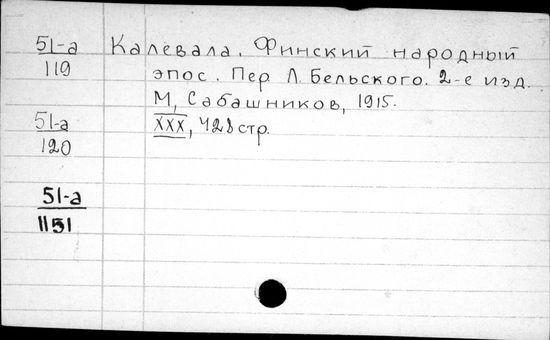 51-а Калевала. Финский народный
119 эпос. Пер Л. Бельского. 2-е изд.
М, Сабашников, 1915.
51-а XXX, 428 стр.
120
51-а
1151